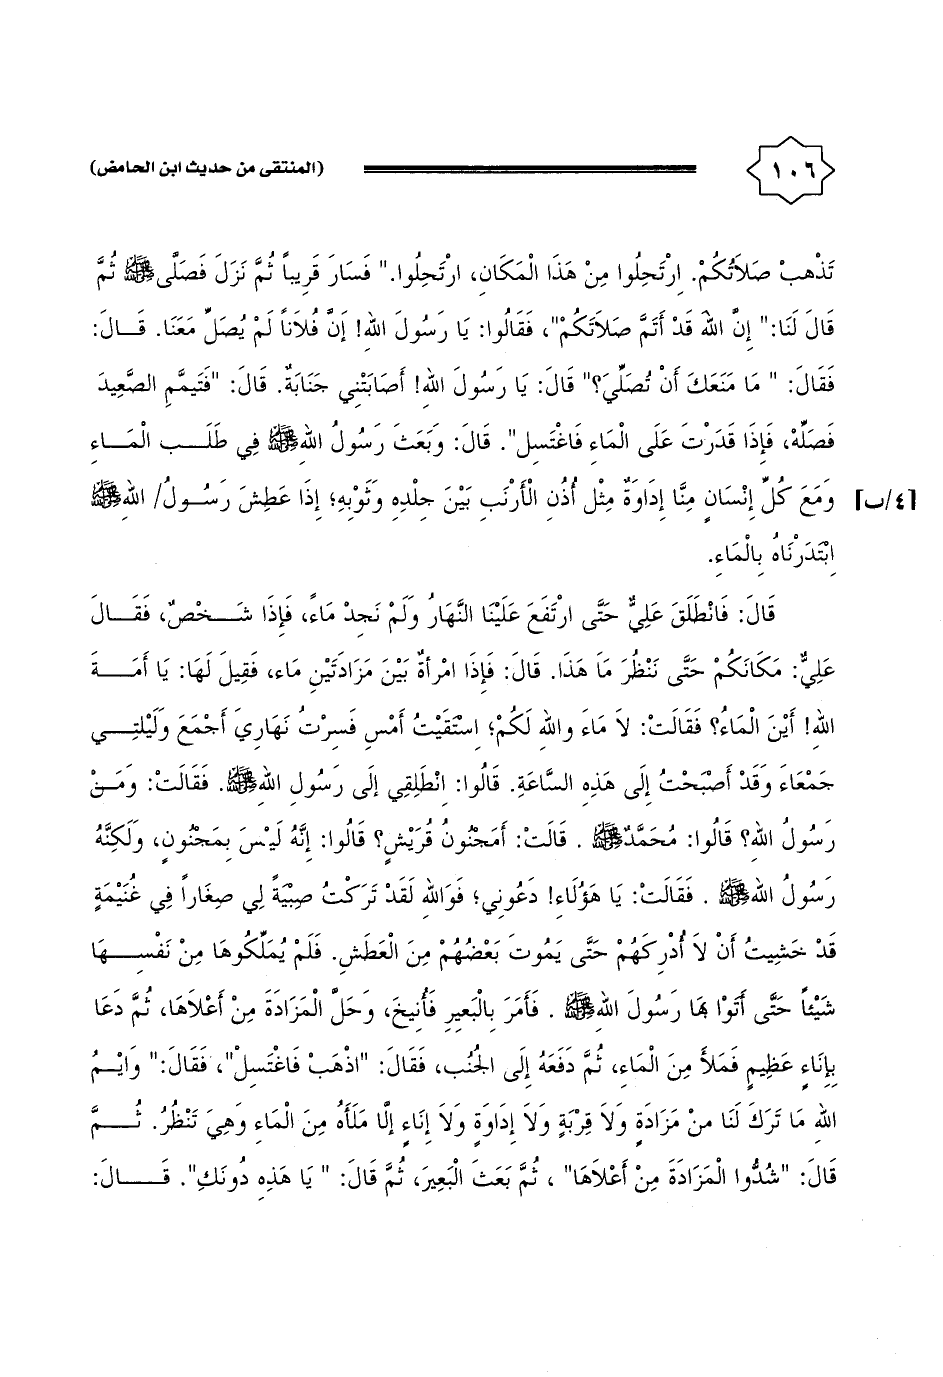 ١٠٦ (المنتقى من حديث ابن الحامض)
تَذْهبْ صَلاَتُكُمْ. اِرْتَحِلُوا مِنْ هَذَا الْمَكَانِ، ارْتَحِلُوا." فَسَارَ قَرِيباً ثُمَّ نَزَلَ فَصَلَّى ﷺ ثُمَّ
قَالَ لَنَا:" إِنَّ اللهَ قَدْ أَتَمَّ صَلاَتَكُمْ"، فَقَالُوا: يَا رَسُولَ اللهِ! إِنَّ فُلاَناً لَمْ يُصَلِّ مَعَنَا. قَــالَ:
فَقَالَ: " مَا مَنَعَكَ أَنْ تُصَلِّيَ؟" قَالَ: يَا رَسُولَ اللهِ! أَصَابَتْنِي جَنَابَةٌ. قَالَ: "فَتَيمَّمِ الصَّعِيدَ
فَصَلِّهْ، فَإِذَا قَدَرْتَ عَلَى الْمَاءِ فَاغْتَسِل". قَالَ: وَبَعَثَ رَسُولُ اللهِ ﷺ فِي طَلَــبِ الْمَــاءِ
وَمَعَ كُلِّ إِنْسَانٍ مِنَّا إِدَاوَةٌ مِثْل أُذُنِ الْأَرْنَبِ بَيْنَ جِلْدِهِ وَثَوْبِهِ؛ إِذَا عَطِشَ رَسُــولُ/ اللهِ ﷺ [٤/ب]
ابْتَدَرْنَاهُ بِالْمَاءِ.
قَالَ: فَانْطَلَقَ عَلِيٌّ حَتَّى ارْتَفَعَ عَلَيْنَا النَّهَارُ وَلَمْ نَجِدْ مَاءً، فَإِذَا شَــخْصٌ، فَقَــالَ
عَلِيٌّ: مَكَانَكُمْ حَتَّى نَنْظُرَ مَا هَذَا. قَالَ: فَإِذَا امْرأةٌ بَيْنَ مَزَادَتَيْنِ مِاءٍ، فَقِيلَ لَهَا: يَا أَمَــةَ
اللهِ! أَيْنَ الْمَاءُ؟ فَقَالَتْ: لاَ مَاءَ واللهِ لَكُمْ؛ اسْتَقَيْتُ أَمْسِ فَسِرْتُ نَهَارِيَ أَجْمَعَ وَلَيْلَتِــي
جَمْعَاءَ وَقَدْ أَصْبَحْتُ إِلَى هَذِهِ السَّاعَةِ. قَالُوا: انْطَلِقِي إِلَى رَسُولِ اللهِ ﷺ. فَقَالَتْ: وَمَــنْ
رَسُولُ اللهِ؟ قَالُوا: مُحَمَّدٌ ﷺ . قَالَتْ: أَمَجْنُونُ قُرَيْشٍ؟ قَالُوا: إِنَّهُ لَيْسَ بِمَجْنُونٍ، وَلَكِنَّهُ
رَسُولُ اللهِ ﷺ . فَقَالَتْ: يَا هَؤُلاَءِ! دَعُونِي؛ فَوَاللهِ لَقَدْ تَرَكْتُ صِبْيَةً لِي صِغَاراً فِي غُنَيْمَةٍ
قَدْ خَشِيتُ أَنْ لاَ أُدْرِكَهُمْ حَتَّى يَمُوتَ بَعْضُهُمْ مِنَ الْعَطَشِ. فَلَمْ يُمَلِّكُوهَا مِنْ نَفْسِــهَا
شَيْئاً حَتَّى أَتَوْا بِهَا رَسُولَ اللهِ ﷺ . فَأَمَرَ بِالْبَعِيرِ فَأُنِيخَ، وَحَلَّ الْمَزَادَةَ مِنْ أَعْلاَهَا، ثُمَّ دَعَا
بِإِنَاءٍ عَظِيمٍ فَمَلأَ مِنَ الْمَاءِ، ثُمَّ دَفَعَهُ إِلَى الجُنُبِ، فَقَالَ: "اذْهَبْ فَاغْتَسِلْ"، فَقَالَ:" وَايْــمُ
اللهِ مَا تَرَكَ لَنَا مِنْ مَزَادَةٍ وَلاَ قِرْبَةٍ وَلاَ إِدَاوَةٍ وَلاَ إِنَاءٍ إِلَّا مَلَأَهُ مِنَ الْمَاءِ وَهِيَ تَنْظُرُ. ثُــمَّ
قَالَ: "شُدُّوا الْمَزَادَةَ مِنْ أَعْلاَهَا" ، ثُمَّ بَعَثَ الْبَعِيرَ، ثُمَّ قَالَ: " يَا هَذِهِ دُونَكِ". قَــالَ: